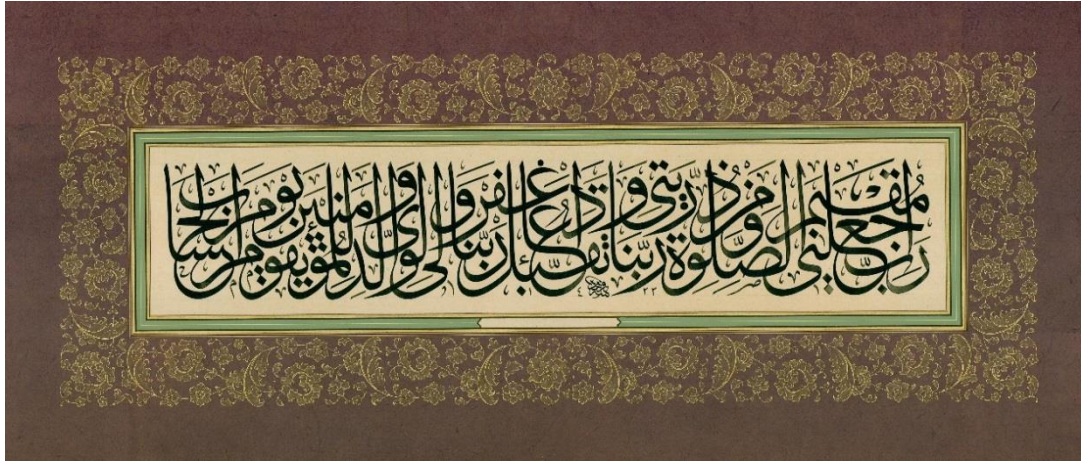 رب اجعلني مقيم الصلوة ومن ذريتي ربنا وتقبل دعاء ربنا اغفر لي ولوالدي وللمؤمنين يوم يقوم الحساب